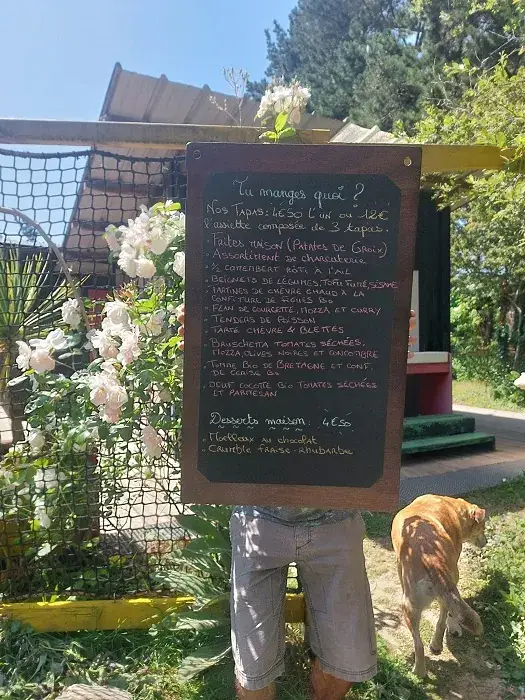 Tu manges quoi ?
Nos Tapas: 4€50 L'un ou 12€
l'assiette composée de 3 tapas.
- Frites maison (Patates de Groix)
- Assortiment de charcuterie
- ½ camembert rôti à l'ail
- Beignets de légumes, tofu fumé, sésame
- Tartines de chèvre chaud à la
confiture de figues bio
- Flan de courgette, mozza et curry
- Tenders de poisson
- Tarte chèvre & blettes
- Bruschetta tomates séchées,
mozza, olives noires et concombre
- Tomme Bio de Bretagne et conf.
de cerise bio
- Oeuf cocotte Bio tomates séchées
et parmesan
Desserts maison : 4€50
- Moelleux au chocolat
- Crumble fraise-rhubarbe